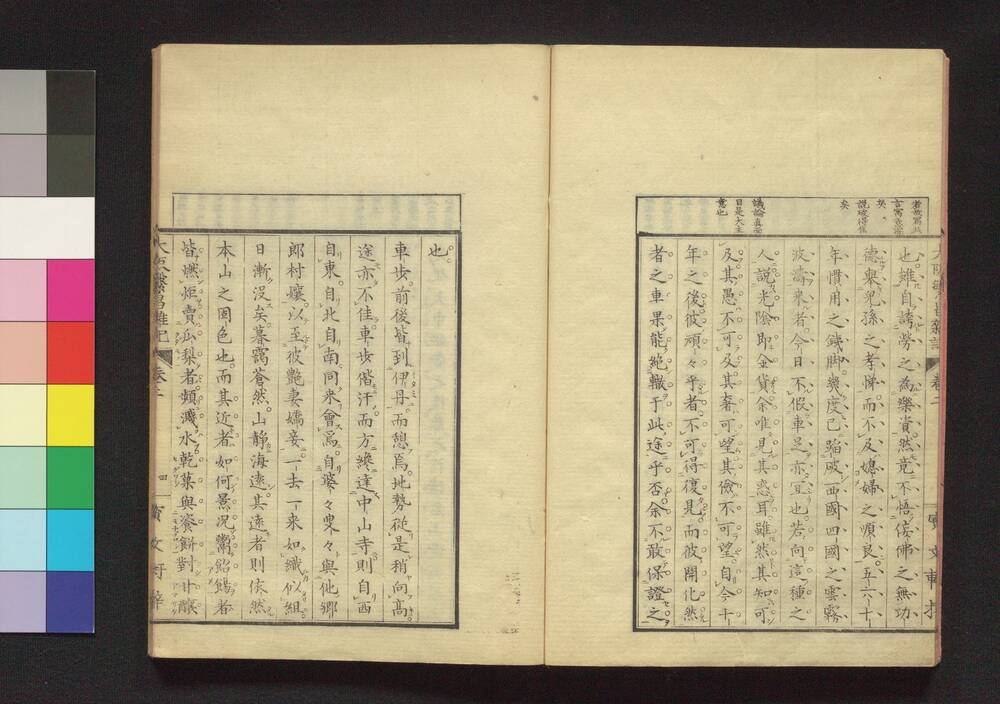 也雖自誇勞之為樂實然竟不悟侫佛之無功
德舉兒孫之孝悌而不及媳婦之順良五六十
年慣用之殘脚幾度已蹈破西國四國之雲霧
波濤來者今日不假車足亦宜也若向這種之
人說光陰即金貨余唯見其惑耳雖然其知可
及其愚不可及其奢可望其儉不可望自今十
年之後彼頑々乎者不可得復見而彼開化然
者之車果能絶轍于此途乎否余不敢保證之
議論真面
目是大主
意也
也
車步前後皆到伊丹而憩焉地勢從是稍向高
途亦不佳車步偕汗而方纔達中山寺則自西
自東自北自南同來會焉自婆々叟々與他鄉
郎村孃以至彼艷妻嬌妾一去一來如織似組
日漸沒矣暮靄蒼然山靜海遠其遠者則依然
本山之固色也而其近者如何景況鬻飴餳者
皆燃炬賣瓜梨者頻濺水乾菓與賚餅對甘釀
大阪繁昌雜記
卷二
四
寶文軒梓